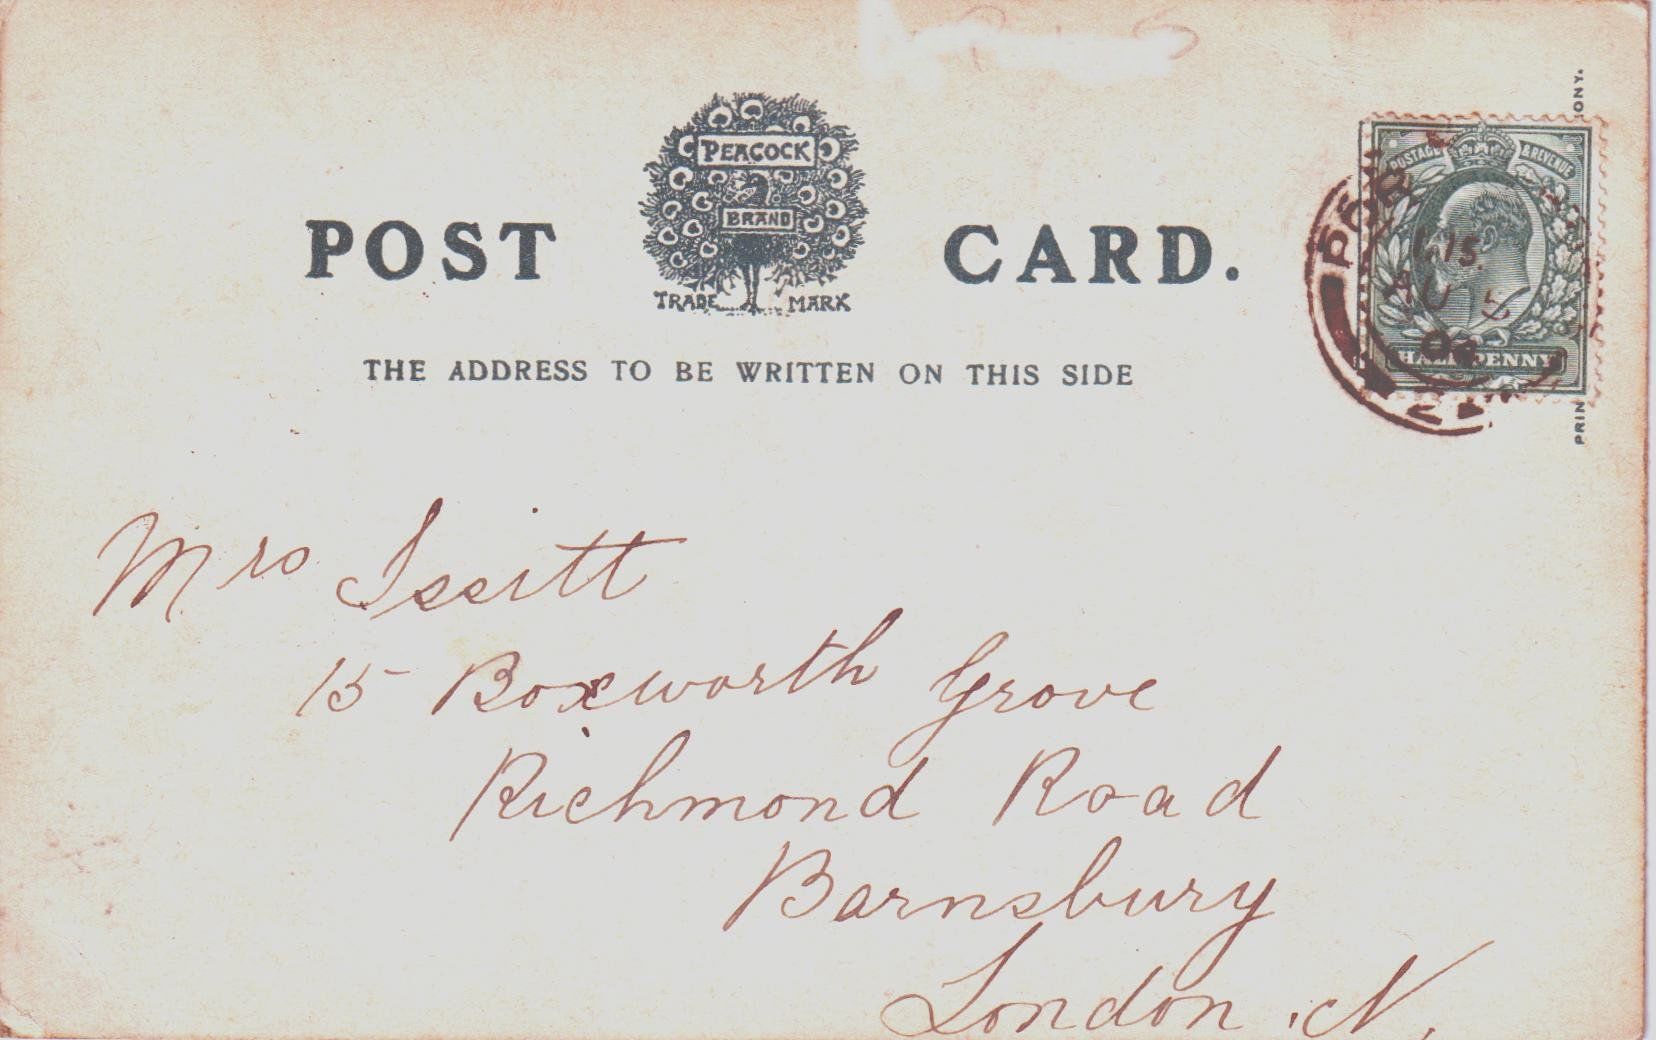 PEACOCK
BRAND
POST CARD.
TRADE MARK
THE ADDRESS TO BE WRITTEN ON THIS SIDE
POSTAGE & REVENUE
HALFPENNY
AU 5
04
ONY.
PRIN
Mrs Issitt
15 Boxworth Grove
Richmond Road
Barnsbury
London. N.